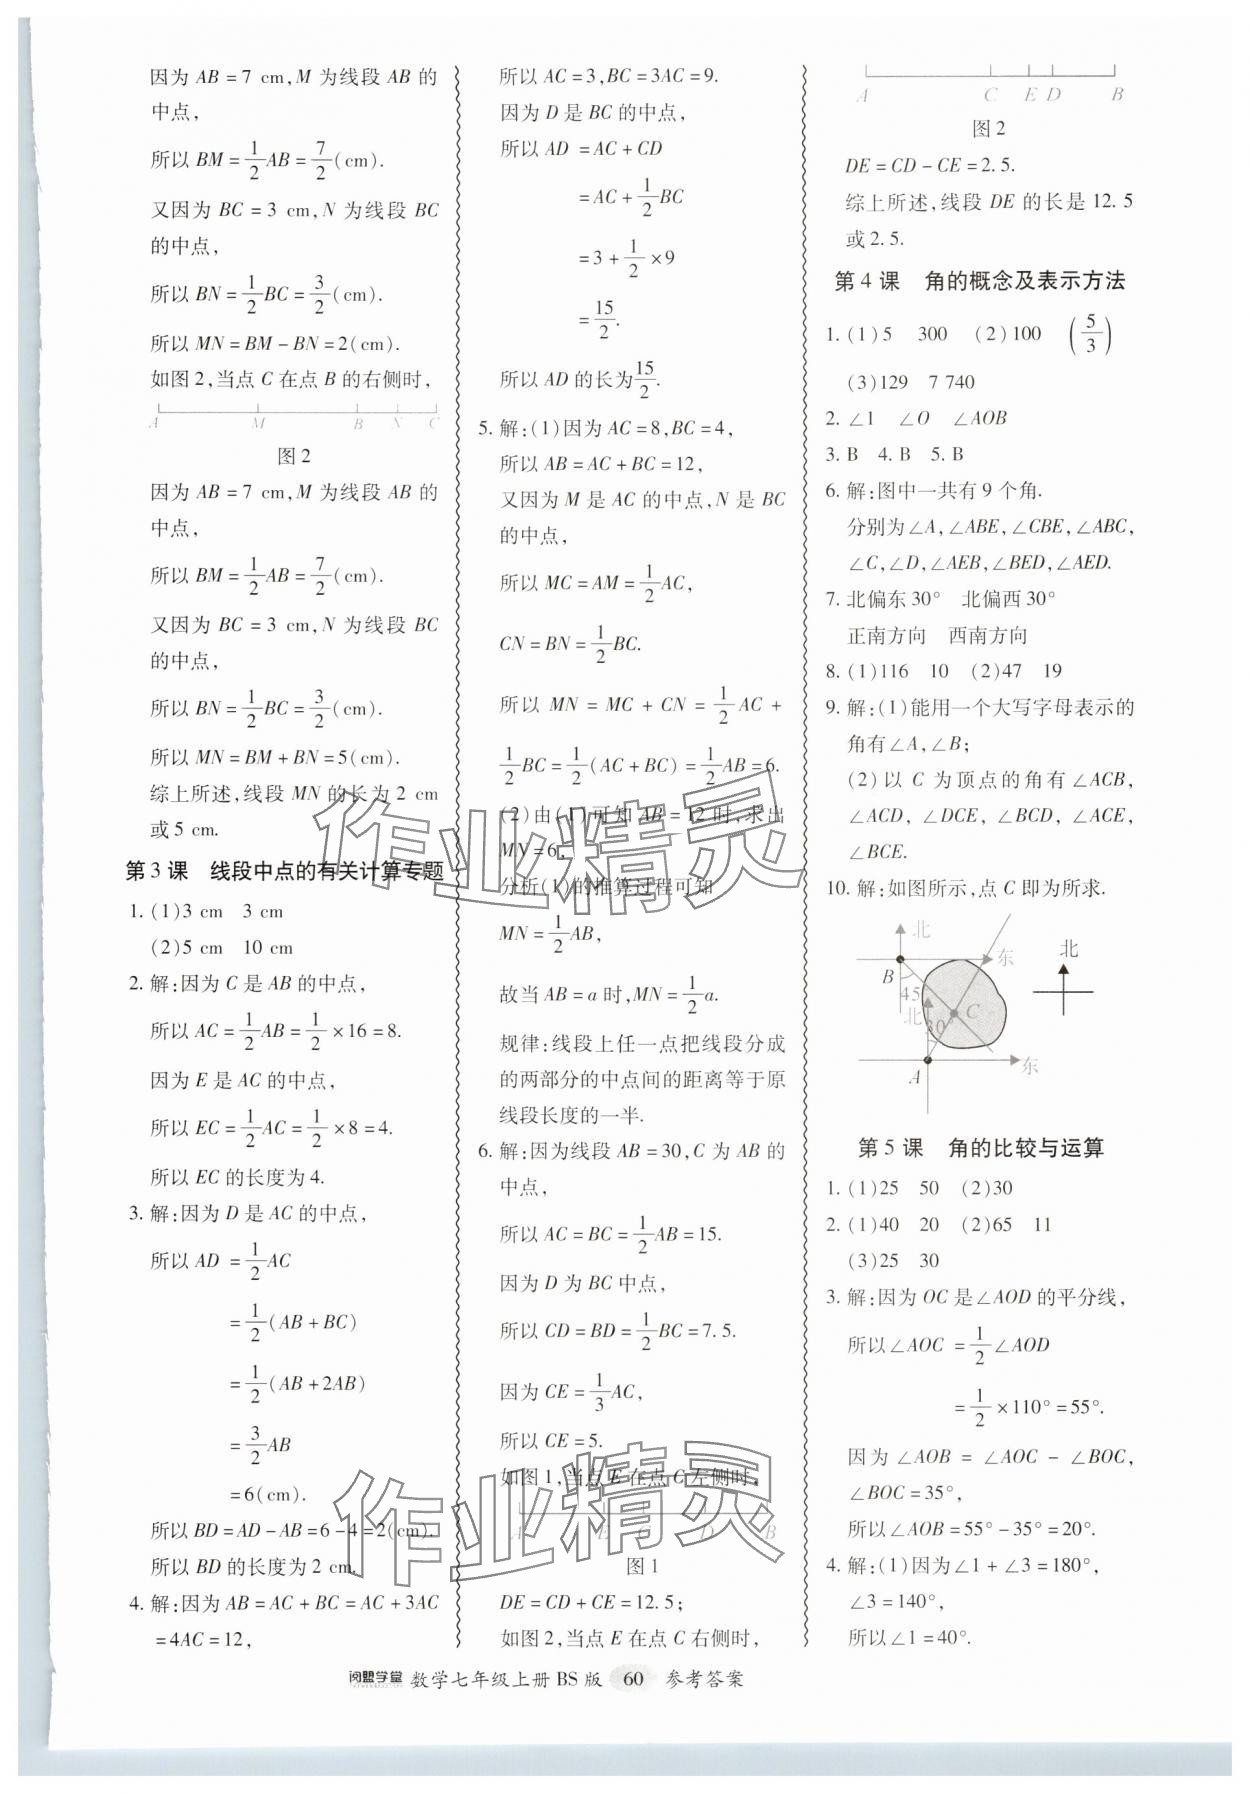 因为 AB = 7 cm, M 为线段 AB 的
中点,
所以 BM = 1/2 AB = 7/2 (cm).
又因为 BC = 3 cm, N 为线段 BC
的中点,
所以 BN = 1/2 BC = 3/2 (cm).
所以 MN = BM - BN = 2(cm).
如图 2,当点 C 在点 B 的右侧时,
A M B N C
图 2
因为 AB = 7 cm, M 为线段 AB 的
中点,
所以 BM = 1/2 AB = 7/2 (cm).
又因为 BC = 3 cm, N 为线段 BC
的中点,
所以 BN = 1/2 BC = 3/2 (cm).
所以 MN = BM + BN = 5(cm).
综上所述,线段 MN 的长为 2 cm
或 5 cm.
第 3 课 线段中点的有关计算专题
1. (1)3 cm 3 cm
(2)5 cm 10 cm
2. 解:因为 C 是 AB 的中点,
所以 AC = 1/2 AB = 1/2 × 16 = 8.
因为 E 是 AC 的中点,
所以 EC = 1/2 AC = 1/2 × 8 = 4.
所以 EC 的长度为 4.
3. 解:因为 D 是 AC 的中点,
所以 AD = 1/2 AC
= 1/2 (AB + BC)
= 1/2 (AB + 2AB)
= 3/2 AB
= 6(cm).
所以 BD = AD - AB = 6 - 4 = 2(cm).
所以 BD 的长度为 2 cm.
4. 解:因为 AB = AC + BC = AC + 3AC
= 4AC = 12,
所以 AC = 3, BC = 3AC = 9.
因为 D 是 BC 的中点,
所以 AD = AC + CD
= AC + 1/2 BC
= 3 + 1/2 × 9
= 15/2.
所以 AD 的长为 15/2.
5. 解:(1)因为 AC = 8, BC = 4,
所以 AB = AC + BC = 12,
又因为 M 是 AC 的中点, N 是 BC
的中点,
所以 MC = AM = 1/2 AC,
CN = BN = 1/2 BC.
所以 MN = MC + CN = 1/2 AC +
1/2 BC = 1/2 (AC + BC) = 1/2 AB = 6.
(2)由(1)可知 AB = 12 时,求出
MN = 6,
分析(1)的推算过程可知
MN = 1/2 AB,
故当 AB = a 时, MN = 1/2 a.
规律:线段上任一点把线段分成
的两部分的中点间的距离等于原
线段长度的一半.
6. 解:因为线段 AB = 30, C 为 AB 的
中点,
所以 AC = BC = 1/2 AB = 15.
因为 D 为 BC 中点,
所以 CD = BD = 1/2 BC = 7.5.
因为 CE = 1/3 AC,
所以 CE = 5.
如图 1,当点 E 在点 C 左侧时,
A E C D B
图 1
DE = CD + CE = 12.5;
如图 2,当点 E 在点 C 右侧时,
A C E D B
图 2
DE = CD - CE = 2.5.
综上所述,线段 DE 的长是 12.5
或 2.5.
第 4 课 角的概念及表示方法
1. (1)5 300 (2)100 (5/3)
(3)129 7 740
2. ∠1 ∠O ∠AOB
3. B 4. B 5. B
6. 解:图中一共有 9 个角.
分别为∠A, ∠ABE, ∠CBE, ∠ABC,
∠C, ∠D, ∠AEB, ∠BED, ∠AED.
7. 北偏东 30° 北偏西 30°
正南方向 西南方向
8. (1)116 10 (2)47 19
9. 解:(1)能用一个大写字母表示的
角有∠A, ∠B;
(2)以 C 为顶点的角有∠ACB,
∠ACD, ∠DCE, ∠BCD, ∠ACE,
∠BCE.
10. 解:如图所示,点 C 即为所求.
北
东
北
B
45°
C
北
30°
A
东
第 5 课 角的比较与运算
1. (1)25 50 (2)30
2. (1)40 20 (2)65 11
(3)25 30
3. 解:因为 OC 是∠AOD 的平分线,
所以∠AOC = 1/2 ∠AOD
= 1/2 × 110° = 55°.
因为 ∠AOB = ∠AOC - ∠BOC,
∠BOC = 35°,
所以∠AOB = 55° - 35° = 20°.
4. 解:(1)因为∠1 + ∠3 = 180°,
∠3 = 140°,
所以∠1 = 40°.
作业精灵
作业精灵
阅盟学堂 数学七年级上册 BS 版 60 参考答案